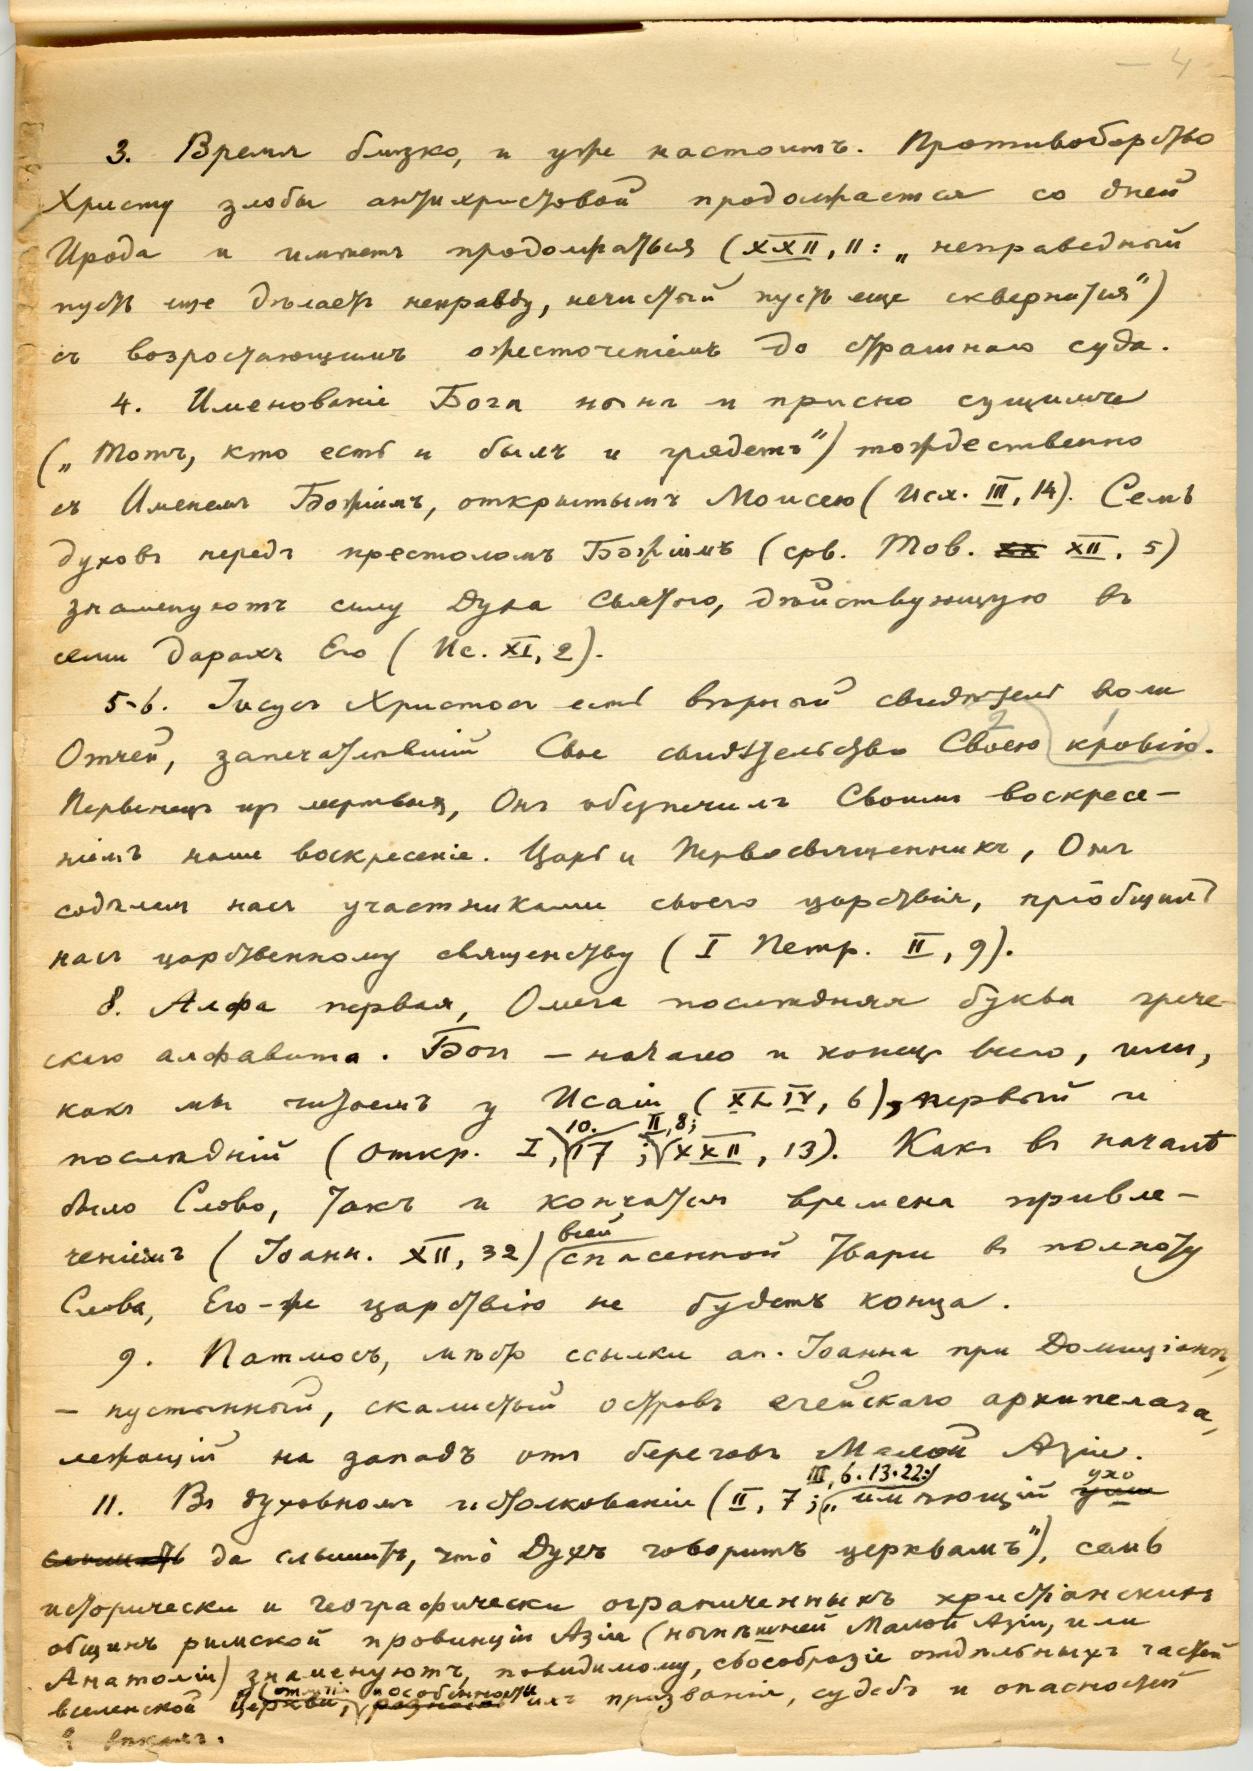 — 4
3. Время близко, и уже настоитъ. Противоборство
Христу злобы антихристовой продолжается со дней
Ирода и имѣетъ продолжаться (XXII, 11: „неправедный
пусть еще дѣлаетъ неправду, нечистый пусть еще сквернится“)
съ возростающимъ ожесточеніемъ до страшнаго суда.
4. Именованіе Бога нынѣ и присно сущимъ
(„Тотъ, кто есть и былъ и грядетъ“) тождественно
съ Именемъ Божіимъ, открытымъ Моисею (Исх. III, 14). Семь
духовъ передъ престоломъ Божіимъ (срв. Тов. XX XII, 5)
знаменуютъ силу Духа Святого, дѣйствующую въ
семи дарахъ Его (Ис. XI, 2).
5-6. Іисусъ Христосъ есть вѣрный свидѣтель воли
2 1
Отчей, запечатлѣвшій Свое свидѣтельство Своею кровію.
Первенецъ изъ мертвыхъ, Онъ обезпечилъ Своимъ воскресе-
ніемъ наше воскресеніе. Царь и Первосвященникъ, Онъ
содѣлалъ насъ участниками своего царствія, пріобщилъ
насъ царственному священству (I Петр. II, 9).
8. Алфа первая, Омега послѣдняя буква грече-
скаго алфавита. Богъ — начало и конецъ всего, или,
какъ мы читаемъ у Исаіи (XLIV, 6), первый и
10. II, 8;
послѣдній (Откр. I, 17; XXII, 13). Какъ въ началѣ
было Слово, такъ и кончатся времена привле-
всей
ченіемъ (Іоанн. XII, 32) спасенной твари въ полноту
Слова, Его-же царствію не будетъ конца.
9. Патмосъ, мѣсто ссылки ап. Іоанна при Домиціанѣ,
— пустынный, скалистый островъ егейскаго архипелага,
лежащій на западъ отъ береговъ Малой Азіи.
III, 6. 13. 22: ухо
11. Въ духовномъ истолкованіи (II, 7; „имѣющій уши
слышать да слышитъ, что Духъ говоритъ церквамъ“), семь
исторически и географически ограниченныхъ христіанскихъ
общинъ римской провинціи Азіи (нынѣшней Малой Азіи, или
Анатоліи) знаменуютъ, повидимому, своеобразіе отдѣльныхъ частей
особенности
вселенской Церкви, ихъ призванія, судебъ и опасностей